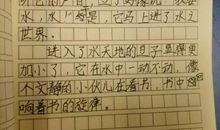 水,水!"于是,它马上进了水之
世界。
进入了水天地的豆子显得更
加小了,它在水中一动不动,像
不文静的小伙儿在看书,书中
响着书的旋律。